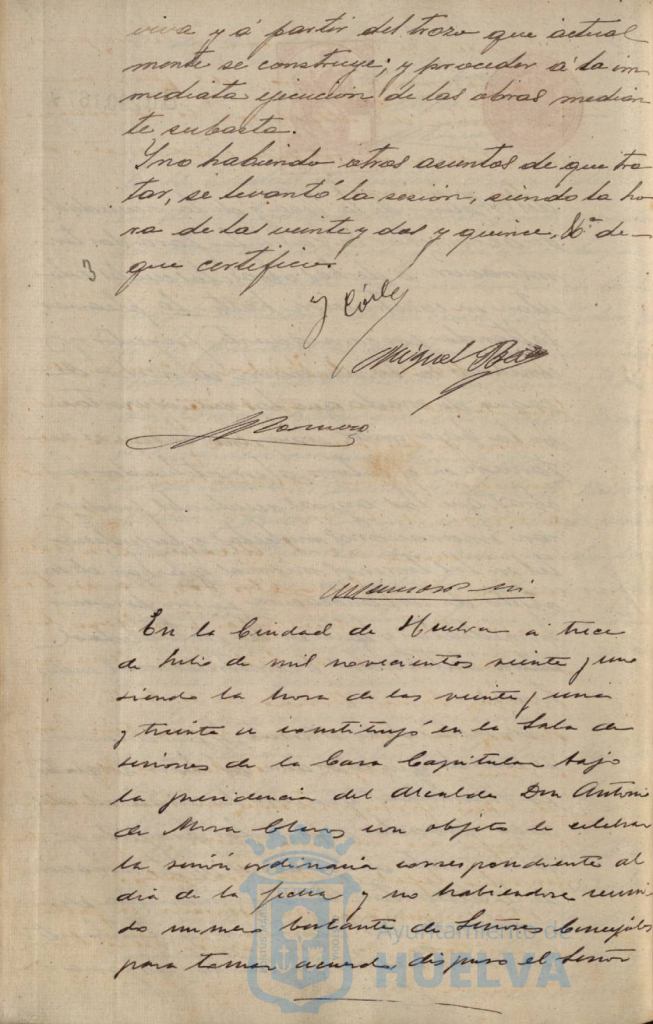 viva y á partir del trozo que actual
mente se construye; y proceder á la in
mediata ejecución de las obras median
te subasta.
Y no habiendo otros asuntos de que tra
tar, se levantó la sesión, siendo la ho
ra de las veinte y dos y quince, de
que certifico.
3
Miguel
Romero
En la Ciudad de Huelva a trece
de Julio de mil novecientos veinte y uno
siendo la hora de las veinte y una
y treinta se constituyó en la Sala de
sesiones de la Casa Capitular bajo
la presidencia del Alcalde Don Antonio
de Mora Claros con objeto de celebrar
la sesión ordinaria correspondiente al
día de la fecha y no habiendose reuni
do número bastante de Señores Concejales
para tomar acuerdo dispuso el Señor
Ayuntamiento de
HUELVA